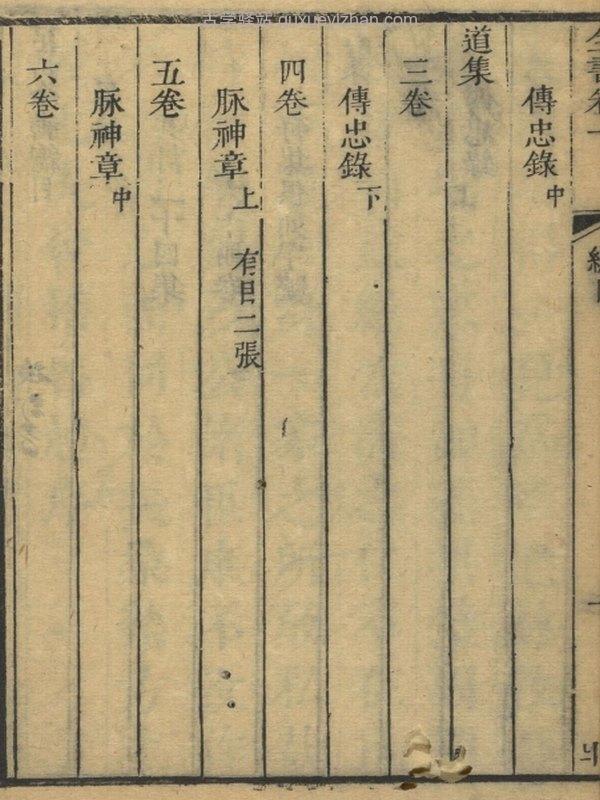 古学驿站 guxueyizhan.com
全書卷一
傳忠錄中
道集
三卷
傳忠錄下
四卷
脉神章上 有目二張
五卷
脉神章中
六卷